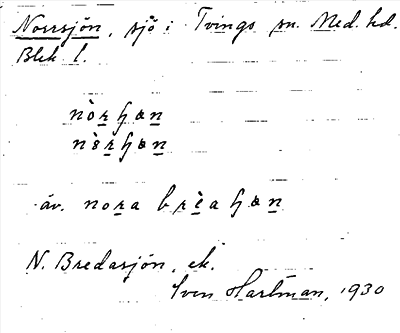 Norrsjön, sjö i Tvings sn. Med. hd.
Blek. l.
nòrɧən
nèrɧən
äv. nora brèaɧən
N. Bredasjön, ek.
Sven Hartman, 1930